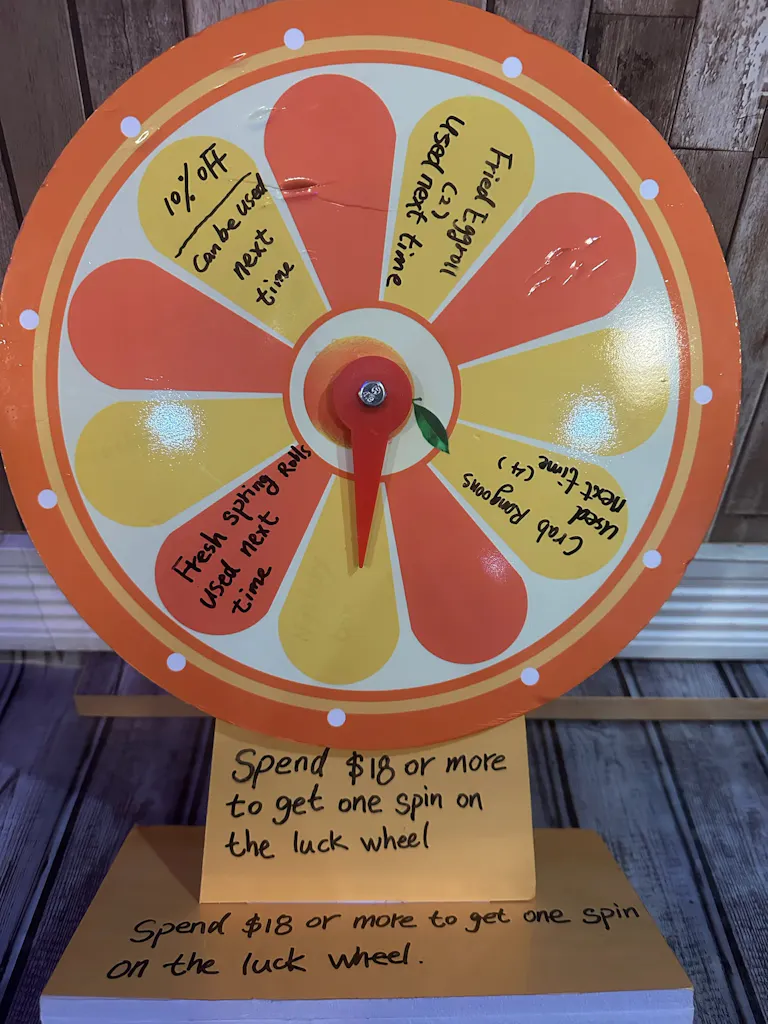 10% off
Can be used
next
time
Fried Eggroll
(2)
Used next time
Crab Rangoons
used
next time (4)
Fresh spring Rolls
used next
time
Spend $18 or more
to get one spin on
the luck wheel
Spend $18 or more to get one spin
on the luck wheel.